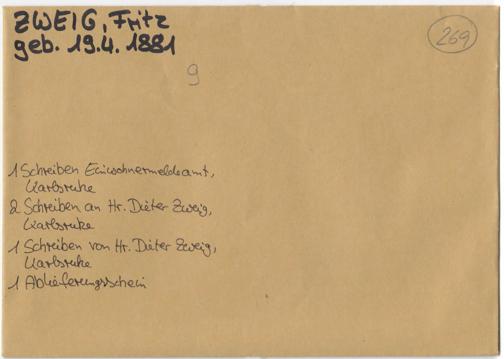 ZWEIG, Fritz
geb. 19.4. 1881
269
9
1 Schreiben Einwohnermeldeamt,
Karlsruhe
2 Schreiben an Hr. Dieter Zweig,
Karlsruhe
1 Schreiben von Hr. Dieter Zweig,
Karlsruhe
1 Ablieferungsschein